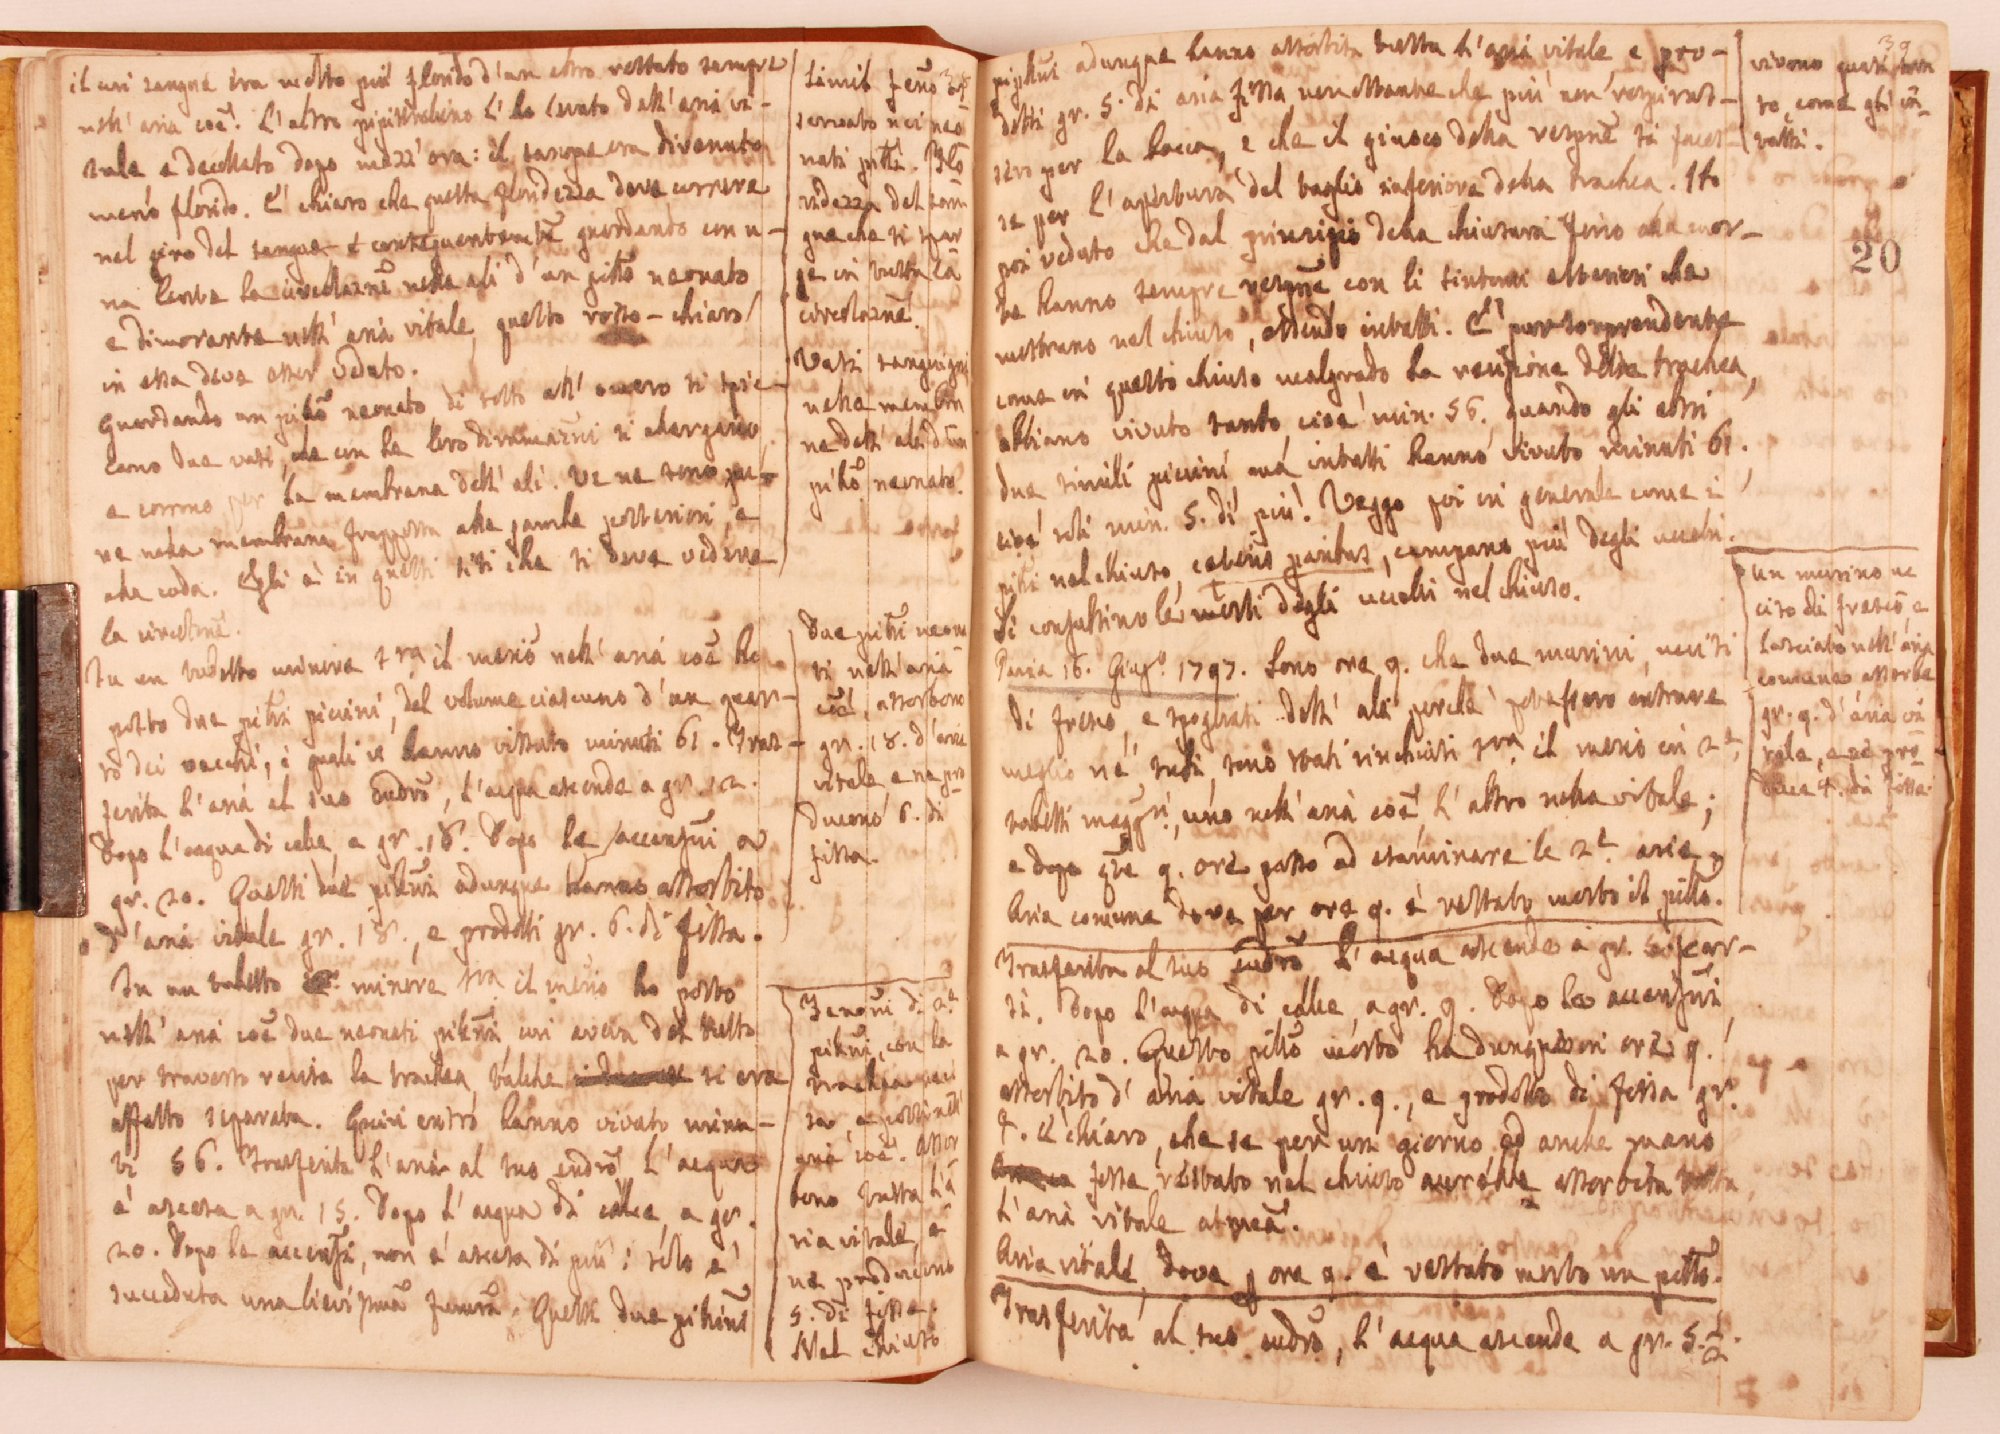 il cui sangue era molto più florido d'un altro restato sempre
nell'aria coe. L'altro pipistrellino l'ho levato dall'aria vi-
tale e decollato dopo mezz'ora: il sangue era divenuto
meno florido. E' chiaro che questa floridezza deve correre
nel giro del sangue e conseguentemte guardando con u-
na lente la circolazne nelle ali d'un pitto neonato
e dimorante nell'aria vitale, questo rosso-chiaro
in essa deve esser veduto.
Guardando un pitto neonato di sotto all'omero si spic-
cano due vasi, che con le loro diramazni si allargano
e corrono per la membrana dell'ali. Ve ne sono pu-
re nella membrana frapposta alle gambe posteriori, e
alla coda. Egli è in questi siti che si deve vedere
la circolne.
In un tubetto minore sra il merio nell'aria coe ho
posto due pitti piccini, del volume ciascuno d'un quar-
to dei vecchi, i quali vi hanno vissuto minuti 61. Tras-
ferita l'aria al suo eudro, l'acqua ascende a gr. 12.
Dopo l'acqua di calce a gr. 18. Dopo le accensni a
gr. 20. Questi due pittini adunque hanno assorbito
d'aria vitale gr. 18., e prodotti gr. 6. di fissa.
In un tubetto minore sra il merio ho posto
nell'aria coe due neonati pittini, cui aveva del tutto
per traverso recisa la trachea, talche si era
affatto separata. Quivi entro hanno vivuto minu-
ti 56. Trasferita l'aria al suo eudro l'acqua
è ascesa a gr. 15. Dopo l'acqua di calce, a gr.
20. Dopo le accensni, non è ascesa di più: solo è
succeduta una lievissma fumata. Questi due pittini
Simil feno 38
servato nei neo
nati pitti. Flo
ridezza del san
gue che si spar
ge in tutta la
circolazne.
Vasi sanguigni
nella membra
na dell'ali d'un
pitto neonato.
Due pitti neona
ti nell'aria
coe, assorbono
gr. 18. d'aria
vitale e ne pro
ducono 6. di
fissa.
Fenoni di 2e
pittini, con la
trachea reci
sa, e posti nell'
aria coe. Assor
bono tutta l'a
ria vitale, e
ne producono
5. di fissa.
Nel chiuso
pittini adunque hanno assorbita tutta l'aria vitale, e pro-
dotti gr. 5. di aria fissa, non ostante che più non respiras-
sero per la bocca, e che il giuoco della respne si faces-
se per l'apertura del taglio inferiore della trachea. Ho
poi veduto che dal principio della chiusura fino alla mor-
te hanno sempre respne con li sintomi esteriori che
mostrano nel chiuso, essendo intatti. E' pur sorprendente
come in questo chiuso malgrado la recisione della trachea,
abbiano vivuto tanto, cioè min. 56. quando gli altri
due simili piccini ma intatti hanno vivuto minuti 61.
cioè soli min. 5. di più! Veggo poi in generale come i
pitti nel chiuso, ceteris paribus, campano più degli uccelli.
Si consultino le morti degli uccelli nel chiuso.
Pavia 16. Giugo. 1797. Sono ore 9. che due murini, uccisi
di fresco, e spogliati dell'ale perchè potessero entrare
meglio ne' tubi, sono stati rinchiusi sra il merio in 2e
tubetti maggri, uno nell'aria coe, l'altro nella vitale;
e dopo qte 9. ore passo ad esaminare le 2e arie.
Aria comune dove per ore 9. è restato morto il pitto.
Trasferita al suo eudro l'acqua ascende a gr. 5. scar-
si. Dopo l'acqua di calce, a gr. 9. Dopo le accensni,
a gr. 20. Questo pitto morto ha dunque in ore 9.
assorbito d'aria vitale gr. 9., e prodotto di fissa gr.
4. E' chiaro, che se per un giorno ed anche meno
fosse restato nel chiuso avrebbe assorbita tutta
l'aria vitale atmca.
Aria vitale, dove p ore 9. è restato morto un pitto.
Trasferita al suo eudro, l'acqua ascende a gr. 5. 1/2.
39
vivono quasi tan
to, come gli in-
tatti.
20
Un murino uc
ciso di fresco e
lasciato nell'aria
comune assorbe
gr. 9. d'aria vi
tale, e ne pro-
duce 4. di fissa.